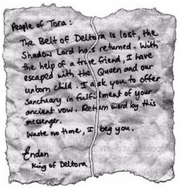 People of Tora:
The Belt of Deltora is lost, the
Shadow Lord has returned. With
the help of a true friend, I have
escaped with the Queen and our
unborn child. I ask you to offer
sanctuary in fulfillment of your
ancient vow. Return word by this
messenger.
Waste no time, I beg you.
Endon
King of Deltora